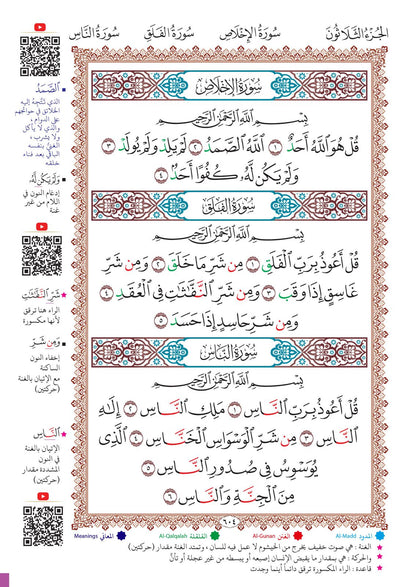 الجُزءُ الثَّلَاثُونَ سُورَةُ الإِخْلَاصِ سُورَةُ الفَلَقِ سُورَةُ النَّاسِ
سُورَةُ الإِخْلَاصِ
بِسْمِ ٱللَّهِ ٱلرَّحْمَٰنِ ٱلرَّحِيمِ
قُلْ هُوَ ٱللَّهُ أَحَدٌ ١ ٱللَّهُ ٱلصَّمَدُ ٢ لَمْ يَلِدْ وَلَمْ يُولَدْ ٣
وَلَمْ يَكُن لَّهُۥ كُفُوًا أَحَدٌۢ ٤
سُورَةُ الفَلَقِ
بِسْمِ ٱللَّهِ ٱلرَّحْمَٰنِ ٱلرَّحِيمِ
قُلْ أَعُوذُ بِرَبِّ ٱلْفَلَقِ ١ مِن شَرِّ مَا خَلَقَ ٢ وَمِن شَرِّ
غَاسِقٍ إِذَا وَقَبَ ٣ وَمِن شَرِّ ٱلنَّفَّٰثَٰتِ فِى ٱلْعُقَدِ ٤
وَمِن شَرِّ حَاسِدٍ إِذَا حَسَدَ ٥
سُورَةُ النَّاسِ
بِسْمِ ٱللَّهِ ٱلرَّحْمَٰنِ ٱلرَّحِيمِ
قُلْ أَعُوذُ بِرَبِّ ٱلنَّاسِ ١ مَلِكِ ٱلنَّاسِ ٢ إِلَٰهِ
ٱلنَّاسِ ٣ مِن شَرِّ ٱلْوَسْوَاسِ ٱلْخَنَّاسِ ٤ ٱلَّذِى
يُوَسْوِسُ فِى صُدُورِ ٱلنَّاسِ ٥
مِنَ ٱلْجِنَّةِ وَٱلنَّاسِ ٦
٦٠٤
ٱلصَّمَدُ
الذي تتجه إليه
الخلائق في حوائجهم
على الدوام ،
والذي لا يأكل
ولا يشرب ،
الغني بنفسه
الباقي بعد فناء
خلقه
وَلَمْ يَكُن لَّهُۥ
إدغام النون في
اللام من غير
غنة
شَرِّ ٱلنَّفَّٰثَٰتِ
الراء هنا ترقق
لأنها مكسورة
وَمِن شَرِّ
إخفاء النون
الساكنة
مع الإتيان بالغنة
(حركتين)
ٱلنَّاسِ
الإتيان بالغنة
في النون
المشددة مقدار
(حركتين)
المدود Al-Madd الغنن Al-Gunan القلقلة Al-Qalqalah المعاني Meanings
الغنة : هي صوت خفيف يخرج من الخيشوم لا عمل فيه للسان ، وتمتد الغنة مقدار (حركتين)
والحركة : هي بمقدار ما يقبض الإنسان إصبعه أو يبسطه من غير عجلة أو تأنٍ
قاعدة : الراء المكسورة ترقق دائماً أينما وجدت